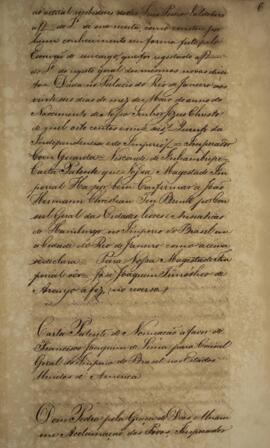 6
do actual recebedor
a f.
de sua conta, como constou por
hum conhecimento em forma feito pelo
Escrivão de seu cargo que foi registado a f.
do registo geral das mesmas novas direi
tos. Dada no Palacio do Rio de Janeiro aos
vinte seis dias do mez de Maio do anno do
Nascimento de Nosso Senhor Jezus Christo
de mil oito centos e vinte seis, Quinto da
Independencia e do Imperio = Imperador
Com Guarda = Visconde de Inhambupe =
Carta Patente que Vossa Magestade Im
perial Ha por bem Confirmar a João
Hermann Christian Ten Brink por Con
sul Geral das Cidades livres e Anseaticas
de Hamburgo, no Imperio do Brasil na
Cidade do Rio de Janeiro como acima
se declara = Para Vossa Magestade Im
perial ver = José Joaquim Timotheo de
Araujo a fez, no reverso
Carta Patente de Nomeação a favor de
Francisco Joaquim de Lima para Consul
Geral do Imperio do Brasil nos Estados
Unidos d'America
Dom Pedro pela Graça de Deos e Unani
me Acclamação dos Povos Imperador